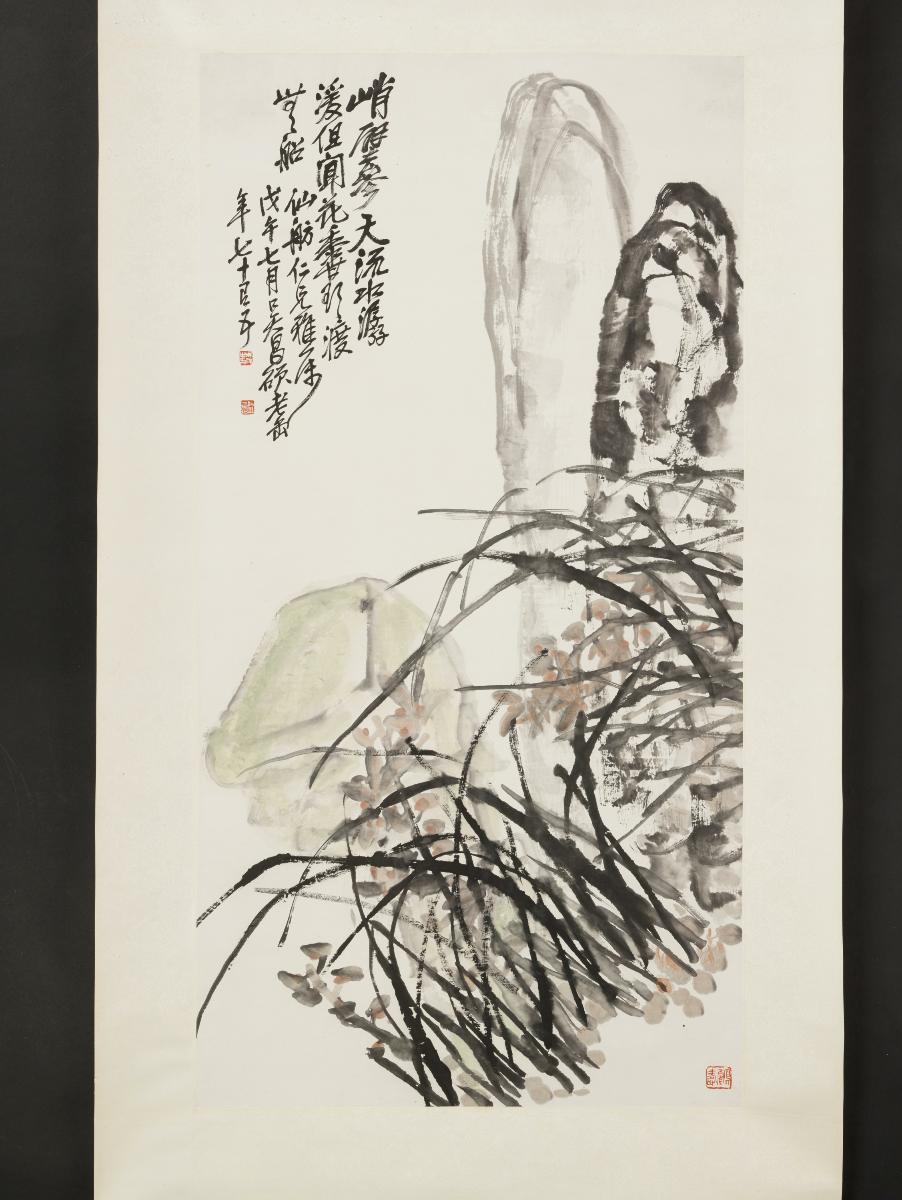 峭壁參天流水潺
湲但聞花香欲渡
無船
仙舫仁兄雅屬
戊午七月吳昌碩老缶
年七十有五